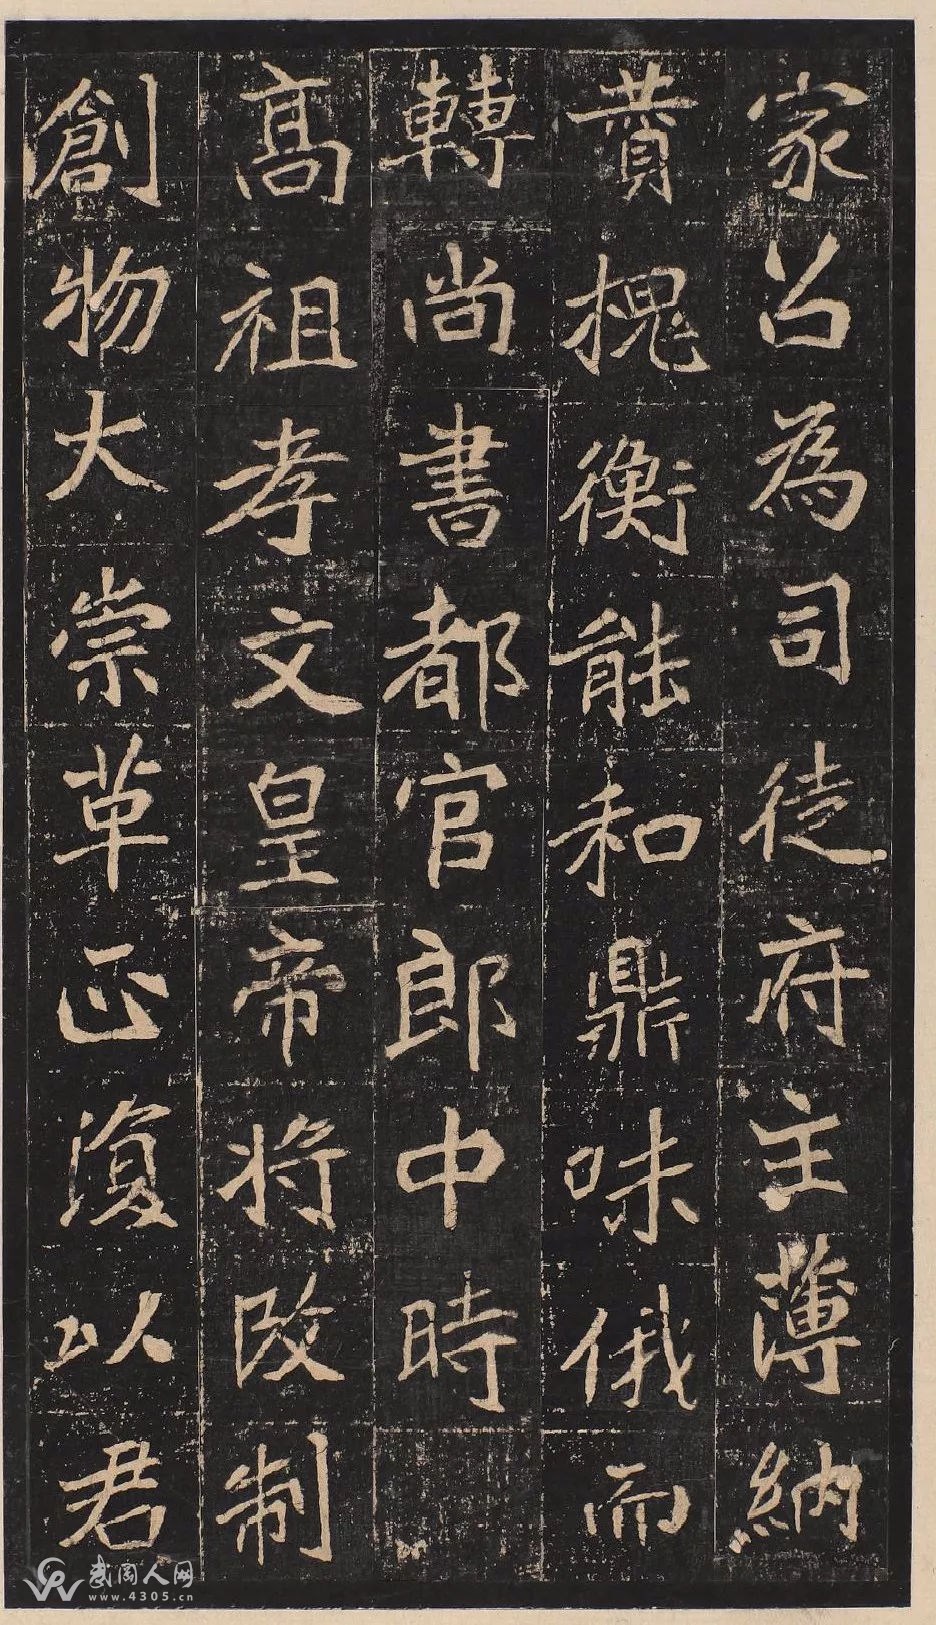 家召為司徒府主薄納
賛槐衡能和鼎味俄而
轉尚書都官郎中時
高祖孝文皇帝將改制
創物大崇革正復以君
武冈人网
www.4305.cn